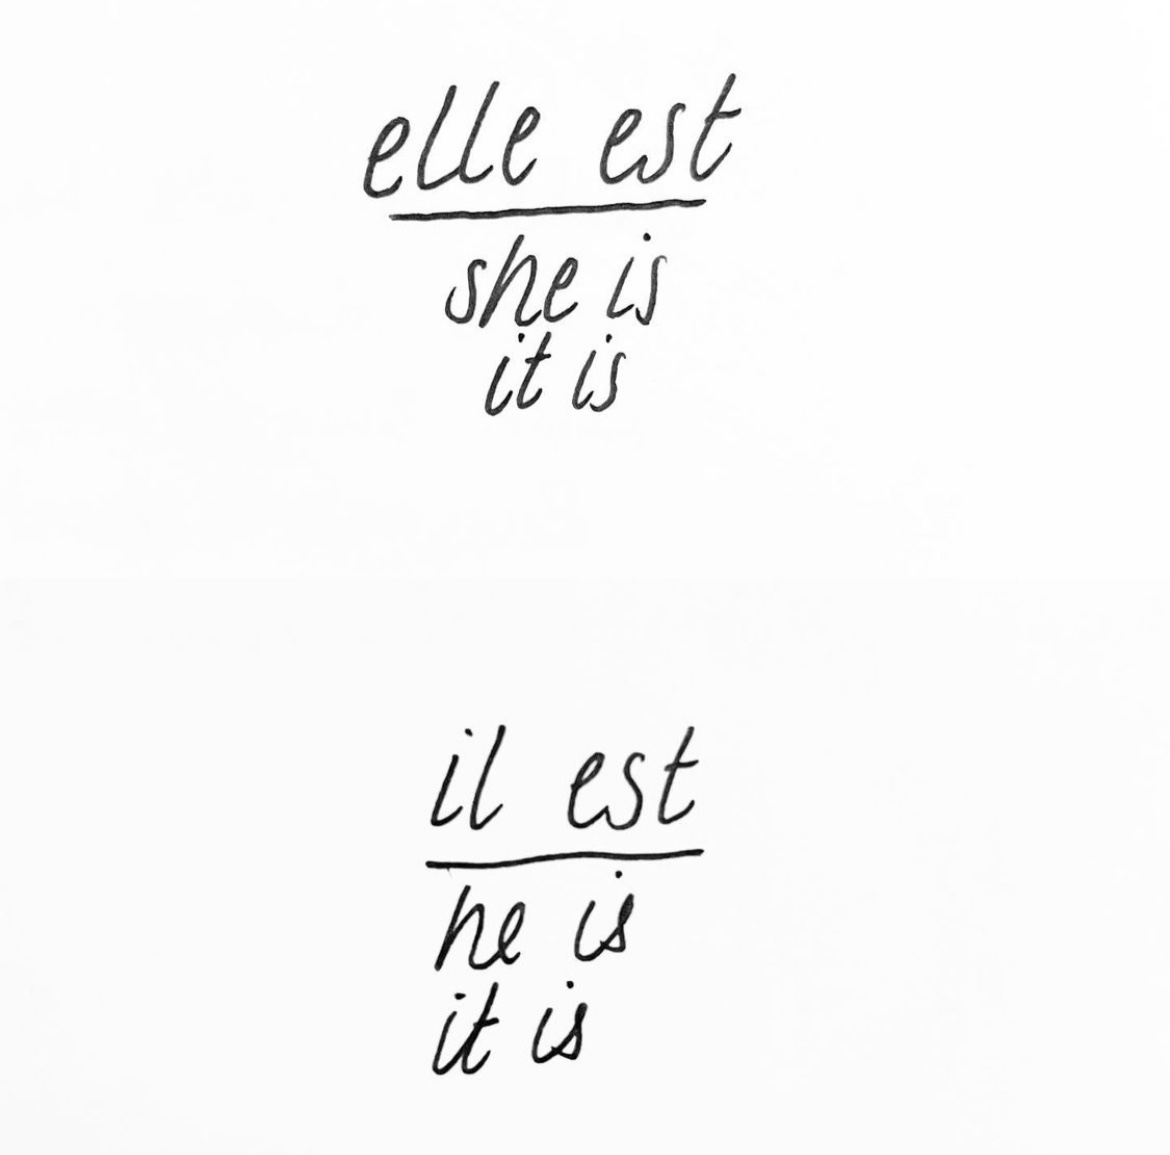 elle est
she is
it is
il est
he is
it is